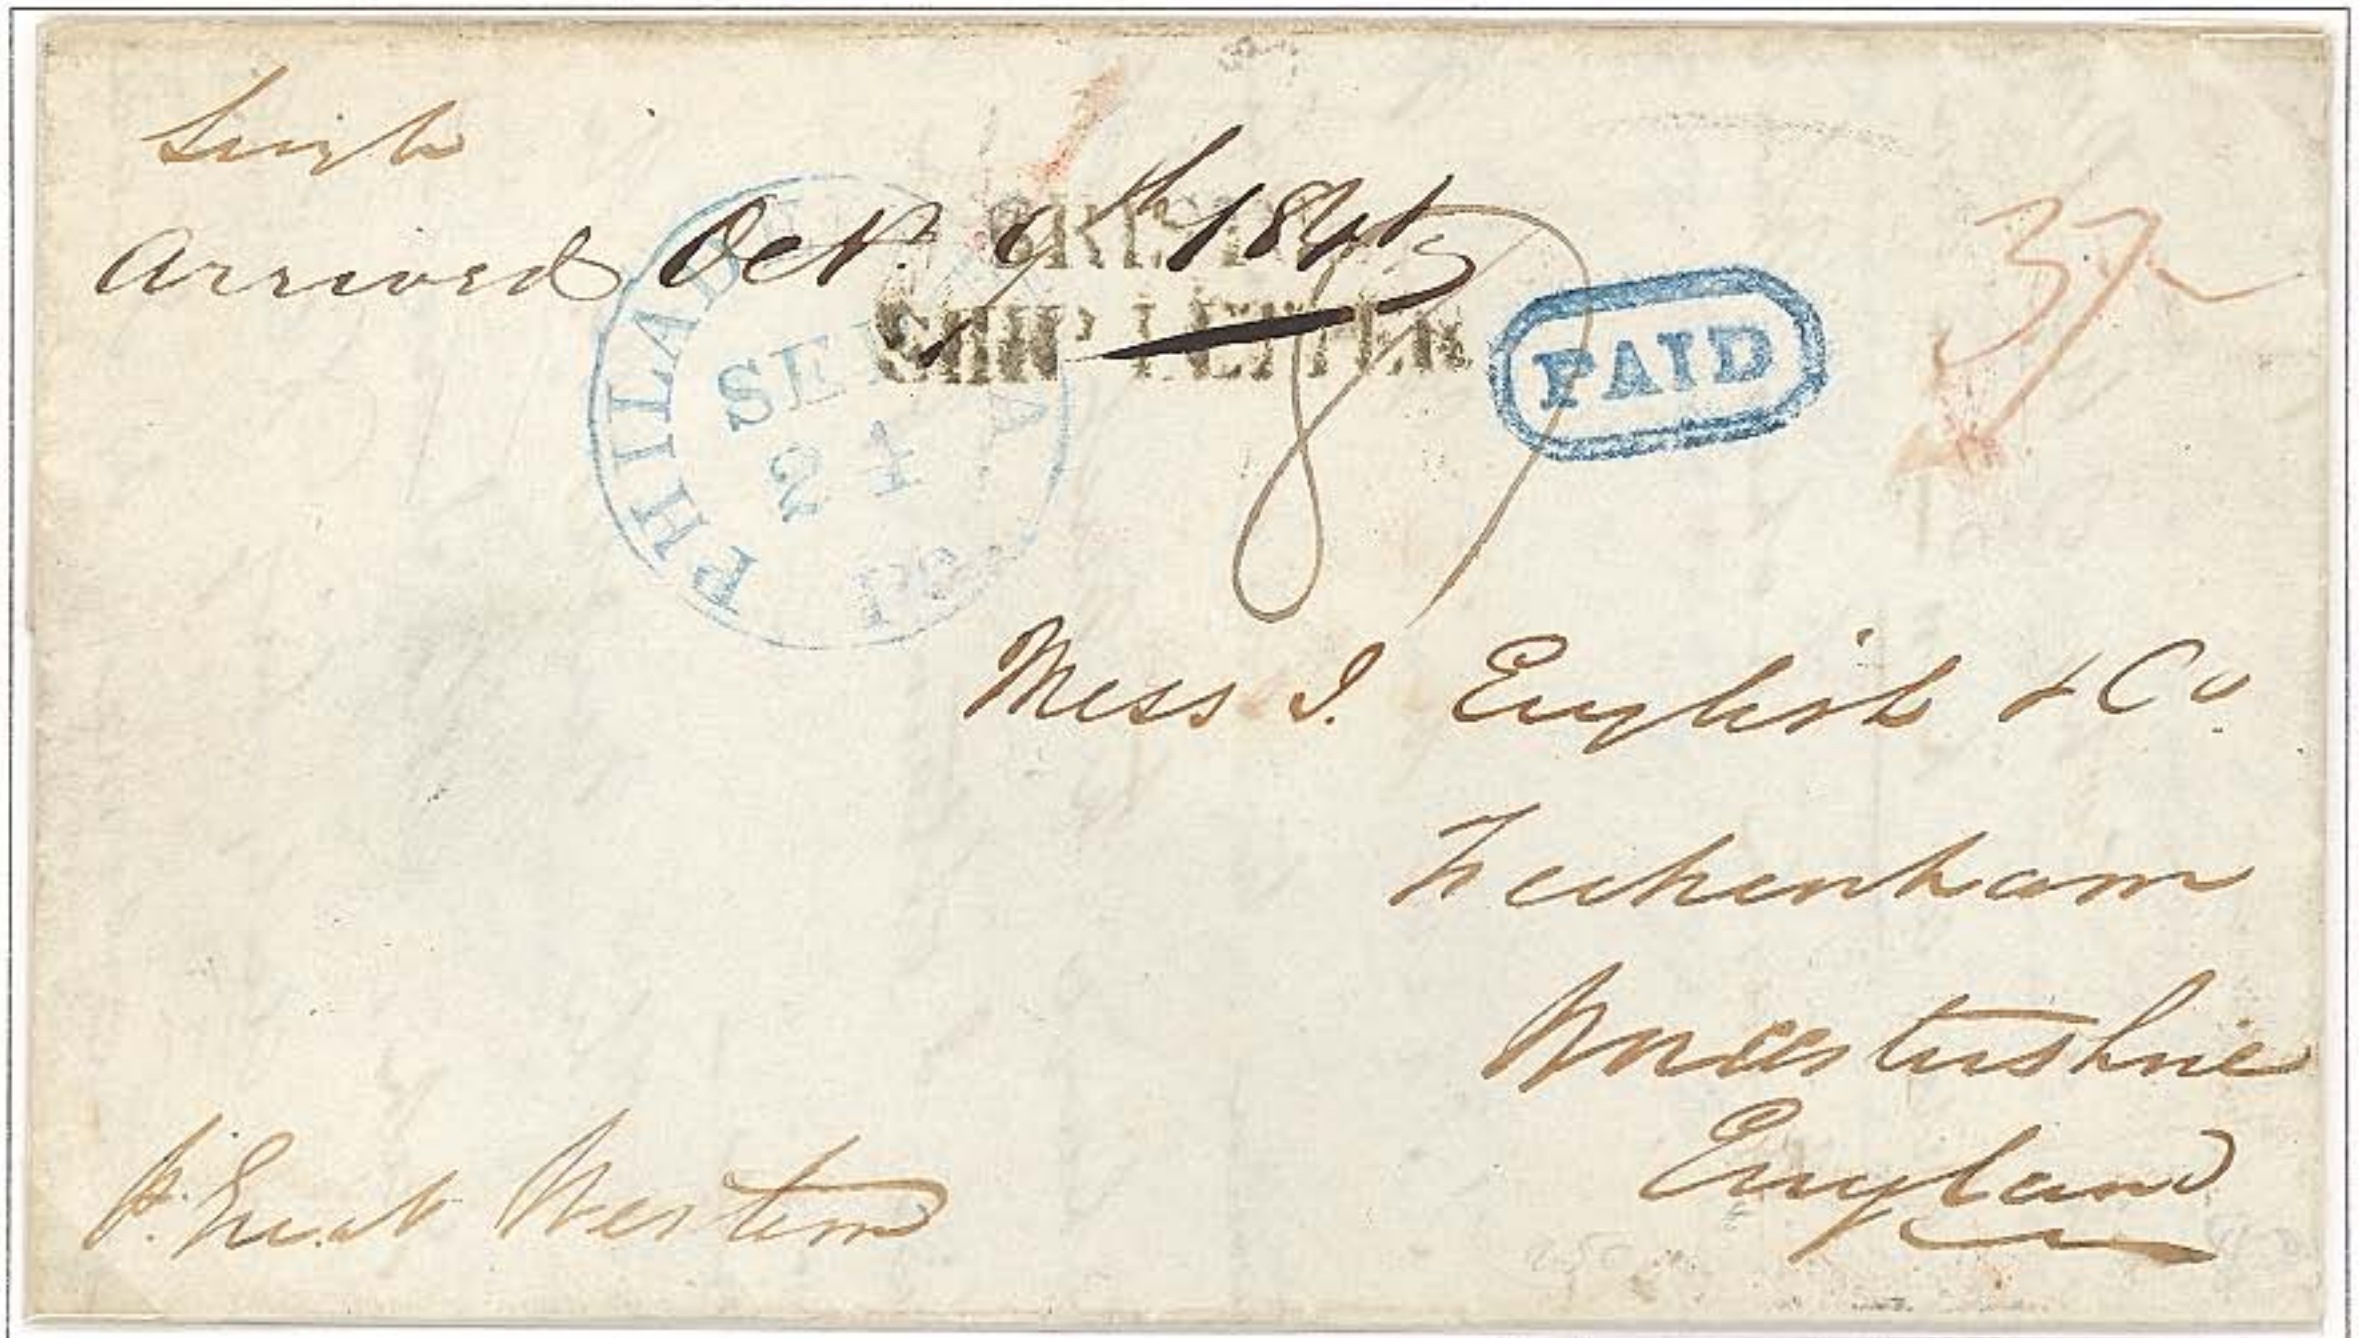 Single
Arrived Octr. 9th 1841
PHILADELPHIA Pa.
SEP
24
BRISTOL
SHIP LETTER
8
PAID
37
Mess I. English & Co.
Feckenham
Worcestershire
England
P. Great Western